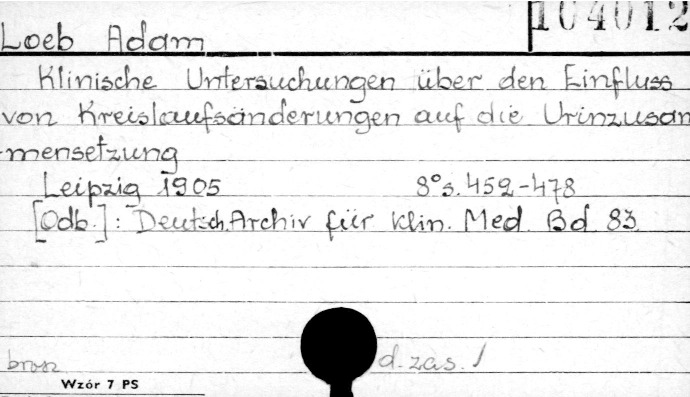 104012
Loeb Adam
Klinische Untersuchungen über den Einfluss
von Kreislaufsänderungen auf die Urinzusam
mensetzung
Leipzig 1905 8° s. 452-478
[Odb.]: Deutsch. Archiv für klin. Med. Bd 83
brosz d. zas. 1
Wzór 7 PS